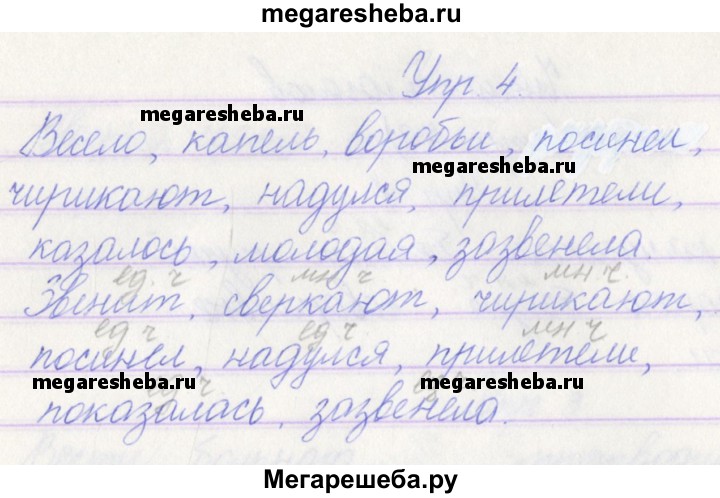 megaresheba.ru
Упр. 4.
megaresheba.ru
Весело, капель, воробьи, посинел,
megaresheba.ru
чирикают, надулся, прилетели,
казалось, молодая, зазвенела.
ед. ч мн ч мн ч.
Звенит, сверкают, чирикают,
ед ч ед ч мн ч
посинел, надулся, прилетели,
megaresheba.ru ед ч megaresheba.ru
показалась, зазвенела.
Мегарешеба.ру